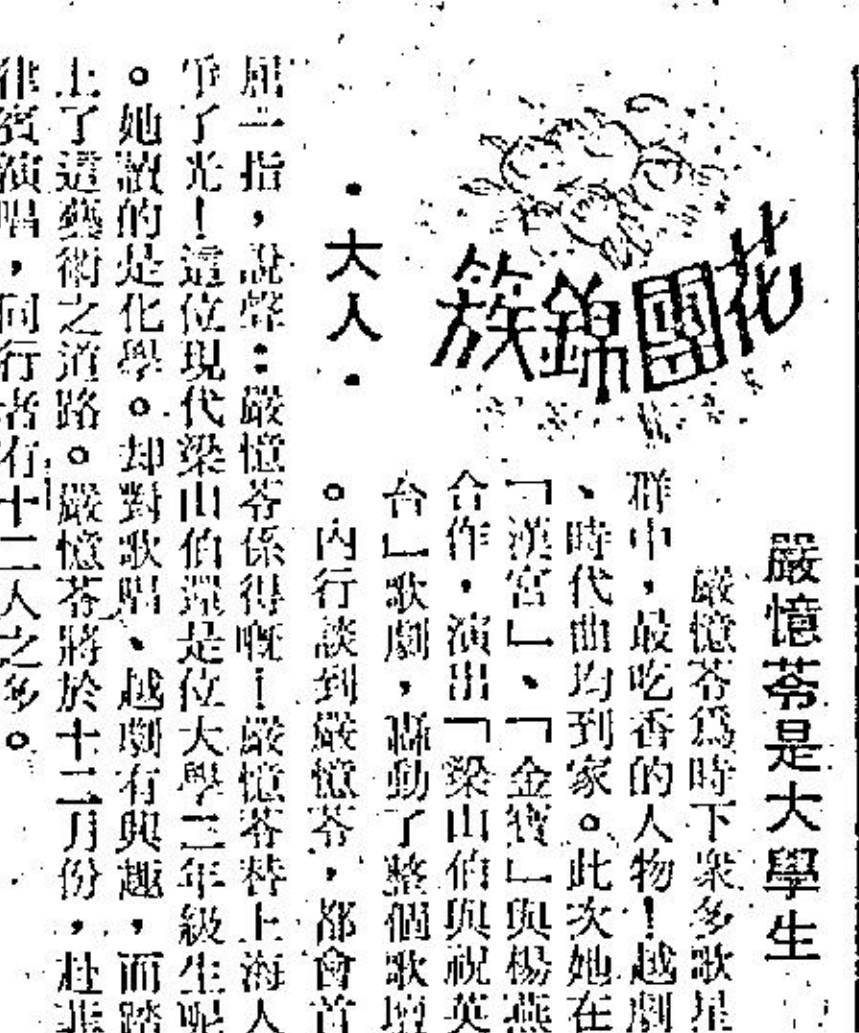 花團錦簇
·大人·
嚴憶苓是大學生
嚴憶苓為時下衆多歌星
群中，最吃香的人物！越劇
、時代曲均到家。此次她在
「漢宮」、「金寶」與楊燕
合作，演出「梁山伯與祝英
台」歌劇，轟動了整個歌壇
。內行談到嚴憶苓，都會首
屈一指，說聲：嚴憶苓係得嘅！嚴憶苓替上海人
爭了光！這位現代梁山伯還是位大學三年級生呢
。她讀的是化學。却對歌唱、越劇有興趣，而踏
上了這藝術之道路。嚴憶苓將於十二月份，赴菲
律賓演唱，同行者有十二人之多。